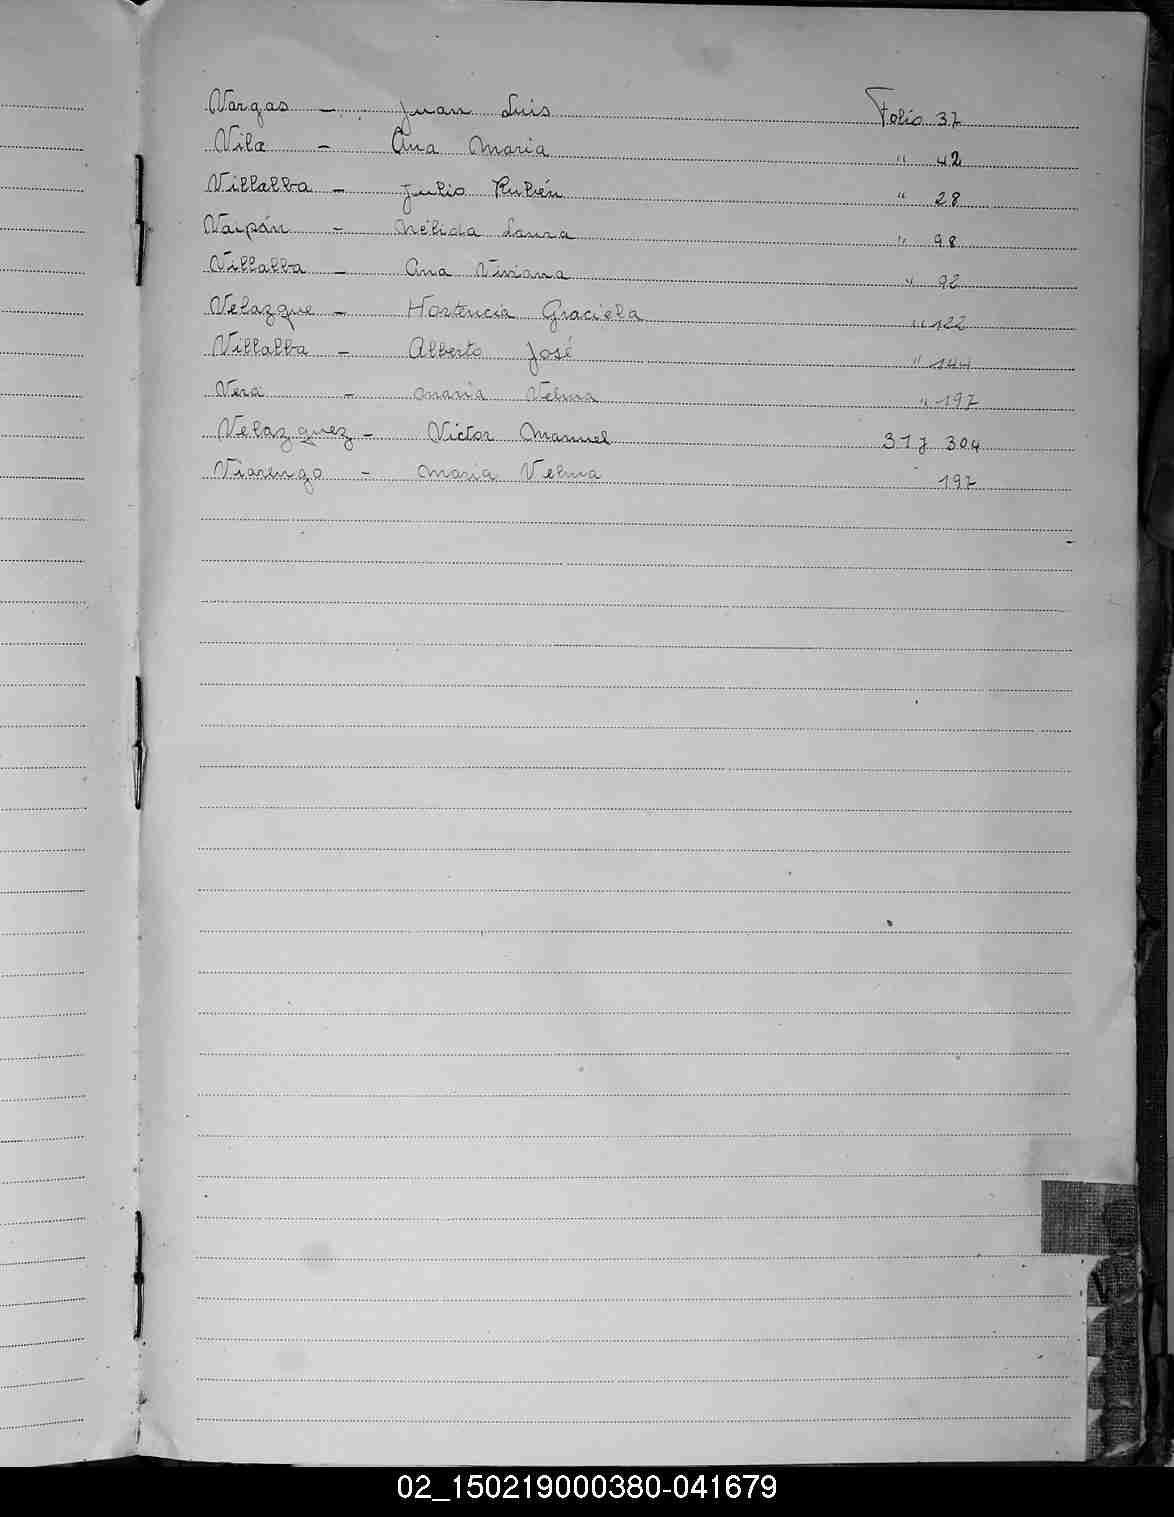 Vargas - Juan Luis Folio 37
Vila - Ana Maria " 42
Villalba - Julio Rubén " 28
Vaipán - Nélida Laura " 98
Villalba - Ana Viviana " 92
Velazque - Hortencia Graciela " 122
Villalba - Alberto José " 144
Vera - Maria Velma " 197
Velazquez - Victor Manuel 304
Viarengo - Maria Velma 197
02_150219000380-041679